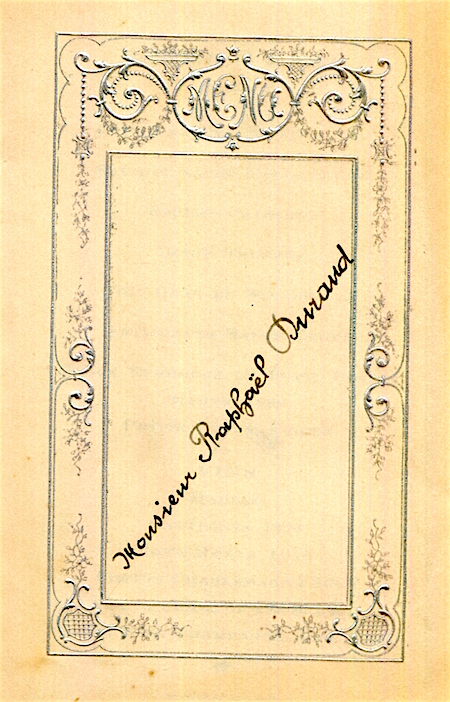 MENU
Monsieur Raphaël Durand